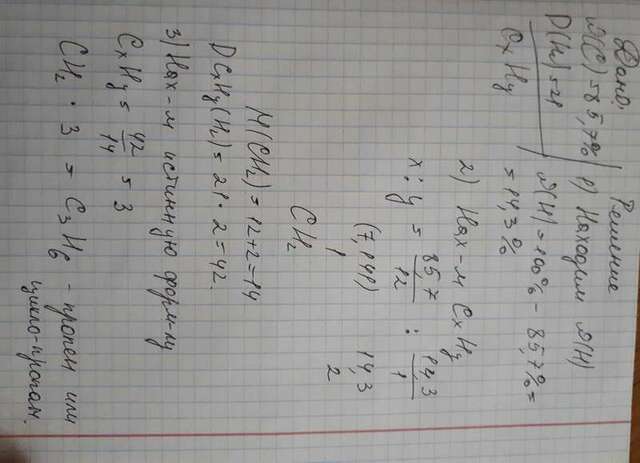 Дано:
ω(C) = 85,7%
D(H₂) = 21
CxHy
Решение
1) Находим ω(H)
ω(H) = 100% - 85,7% =
= 14,3%
2) Нах-м CxHy
x : y = 85,7/12 : 14,3/1
(7,141) 14,3
1 2
CH₂
M(CH₂) = 12+2 = 14
D CxHy(H₂) = 21·2 = 42.
3) Нах-м истинную форм-лу
CxHy = 42/14 = 3
CH₂ · 3 = C₃H₆ - пропен или
цикло-пропан.